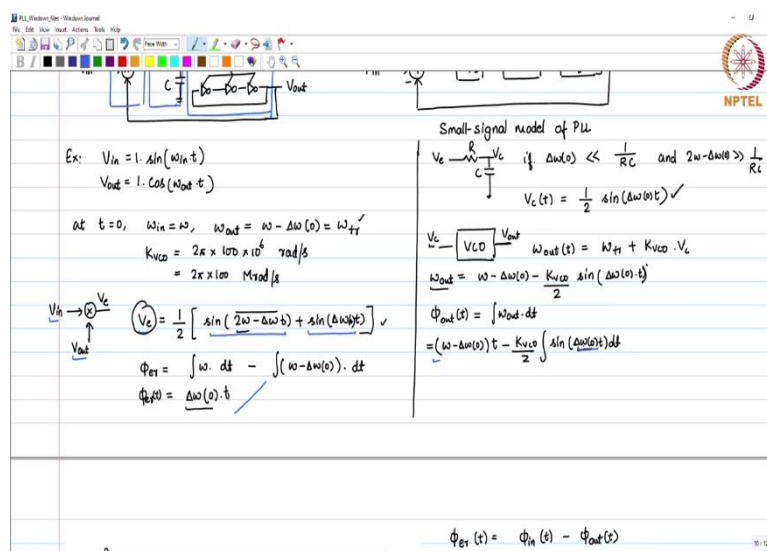 PLL_Windows_files - Windows Journal
File Edit View Insert Actions Tools Help
Page Width
B I
NPTEL
C Vout
Small-signal model of PLL
Ex: Vin = 1. sin(ωin t)
Vout = 1. cos(ωout t)
at t=0, ωin = ω, ωout = ω - Δω(0) = ωfr
KVCO = 2π × 100 × 10⁶ rad/s
= 2π × 100 Mrad/s
Vin → × Ve
Vout
Ve = 1/2 [ sin(2ω-Δω t) + sin(Δω(0)t) ] ✓
ϕer = ∫ω. dt - ∫(ω-Δω(0)). dt
ϕer(t) = Δω(0).t
Ve R Vc if Δω(0) << 1/RC and 2ω-Δω(0) >> 1/RC
C
Vc(t) = 1/2 sin(Δω(0)t) ✓
Vc VCO Vout ωout(t) = ωfr + KVCO . Vc
ωout = ω - Δω(0) - KVCO/2 sin(Δω(0).t)
ϕout(t) = ∫ωout.dt
= (ω-Δω(0))t - KVCO/2 ∫ sin(Δω(0)t)dt
ϕer(t) = ϕin(t) - ϕout(t)